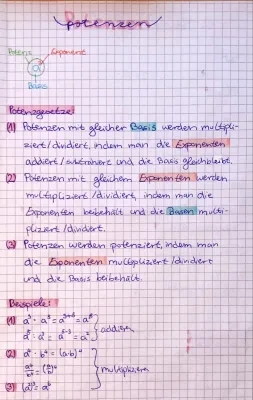 Potenzen
Potenz Exponent
a
Basis
Potenzgesetze:
(1) Potenzen mit gleicher Basis werden multipli-
ziert/dividiert, indem man die Exponenten
addiert/subtrahiert und die Basis gleichbleibt.
(2) Potenzen mit gleichem Exponenten werden
multipliziert/dividiert, indem man die
Exponenten beibehält und die Basen multi-
pliziert/dividiert.
(3) Potenzen werden potenziert, indem man
die Exponenten multipliziert/dividiert
und die Basis beibehält.
Beispiele:
(1)
addieren
(2)
multiplizieren
(3)